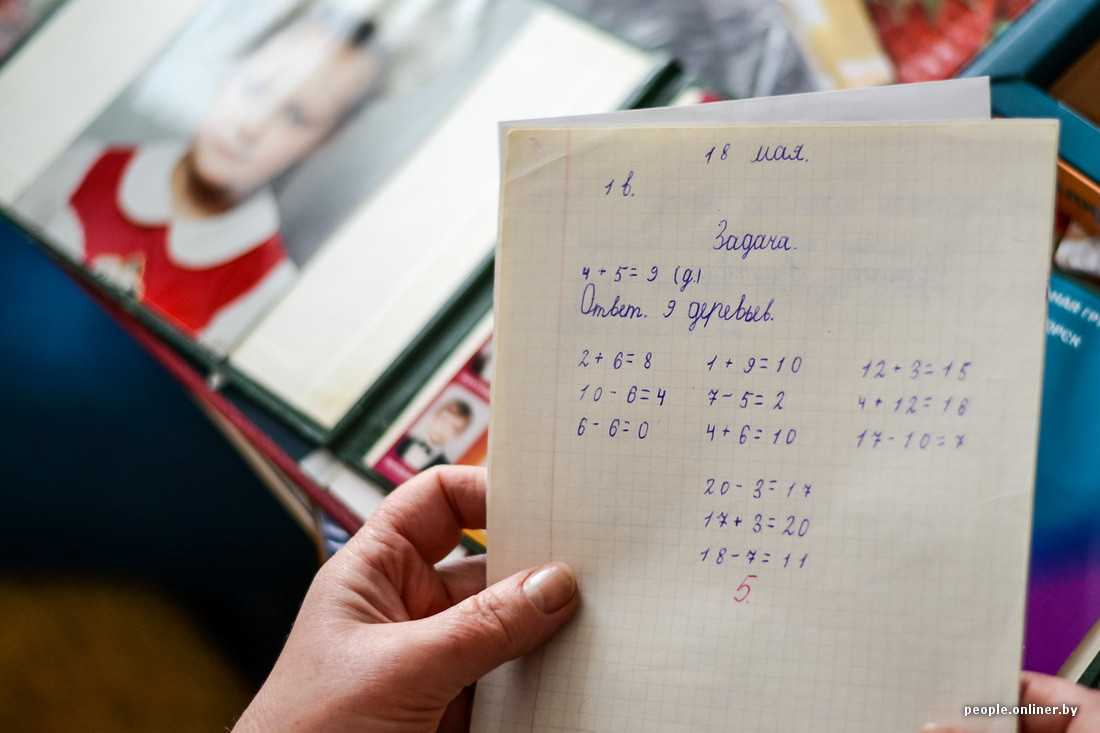 18 мая.
1 в.
Задача.
4 + 5 = 9 (д.)
Ответ. 9 деревьев.
2 + 6 = 8 1 + 9 = 10 12 + 3 = 15
10 - 6 = 4 7 - 5 = 2 4 + 12 = 16
6 - 6 = 0 4 + 6 = 10 17 - 10 = 7
20 - 3 = 17
17 + 3 = 20
18 - 7 = 11
5.
НАЯ ГР
ОРСК
people.onliner.by